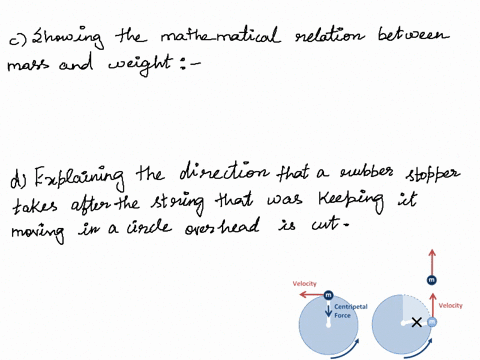 c) Showing the mathematical relation between
mass and weight :-
d) Explaining the direction that a rubber stopper
takes after the string that was keeping it
moving in a circle overhead is cut.
Velocity
m
Centripetal
Force
m
Velocity
m